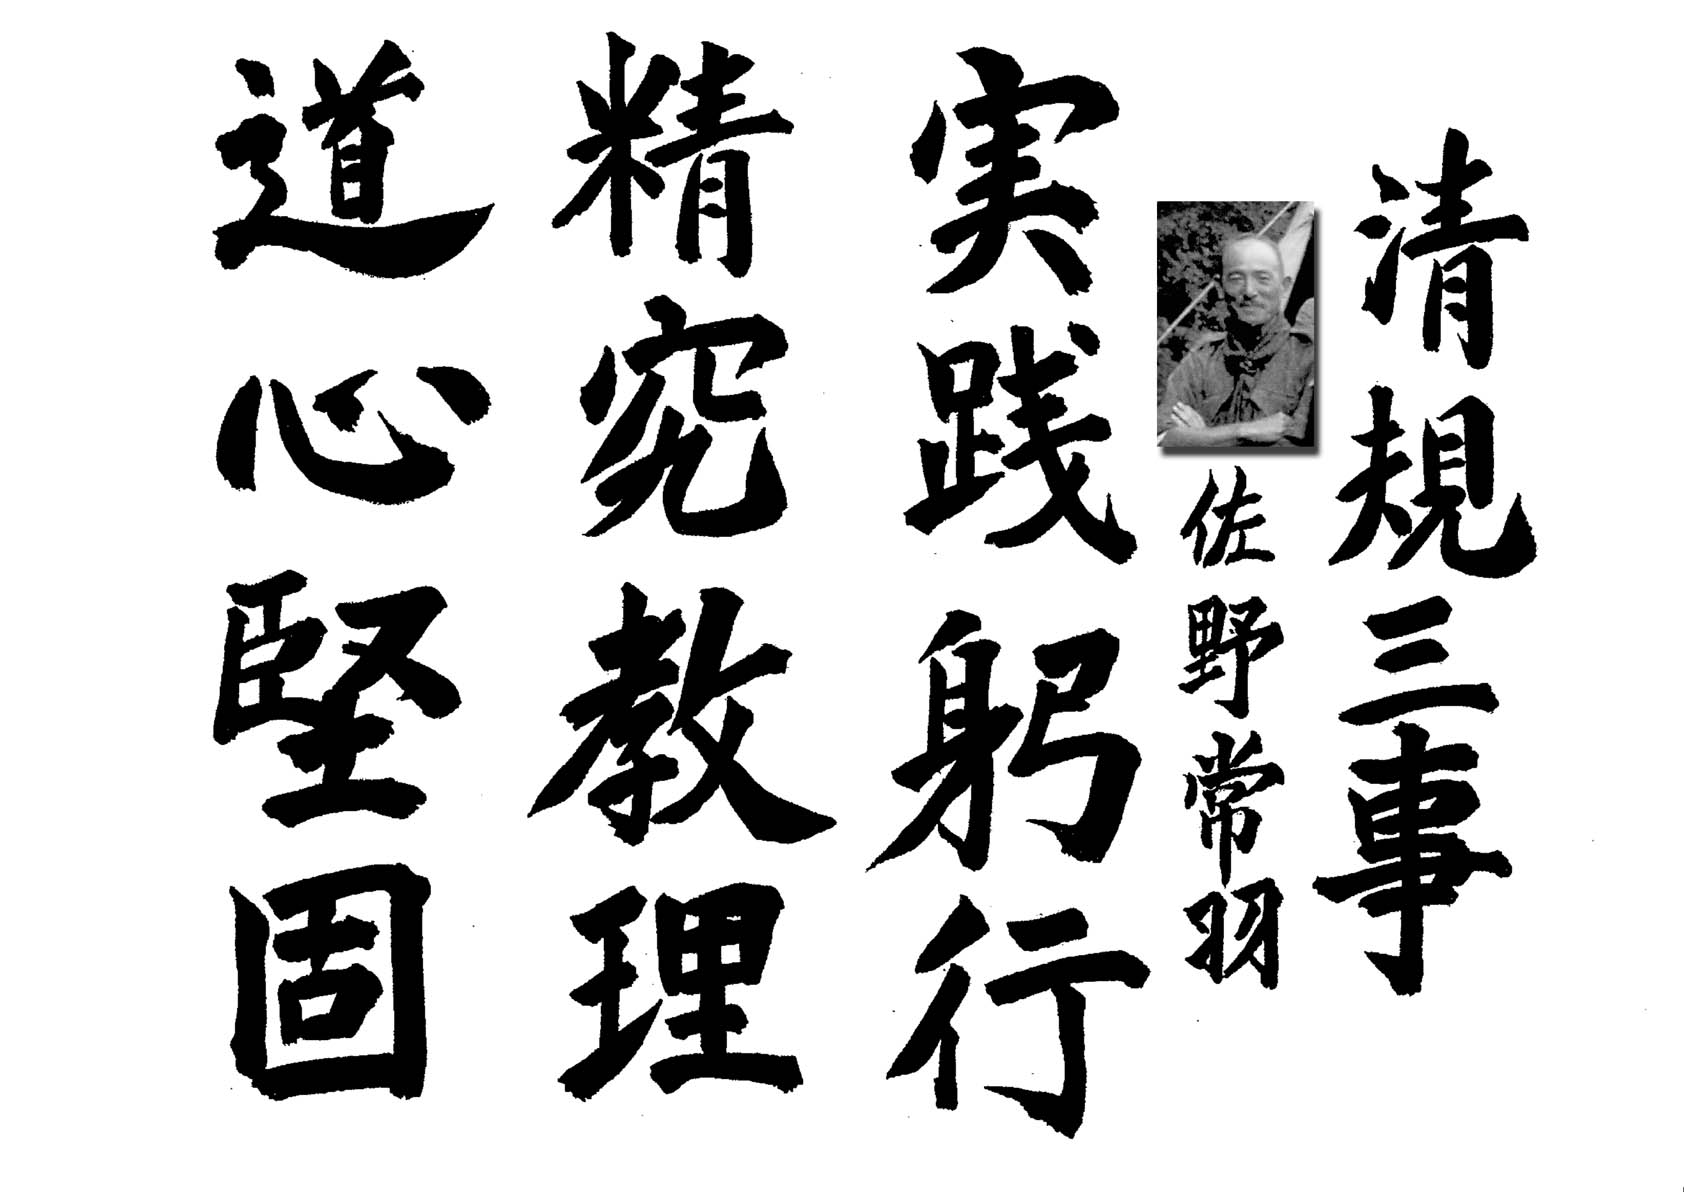 清規三事
佐野常羽
実践躬行
精究教理
道心堅固